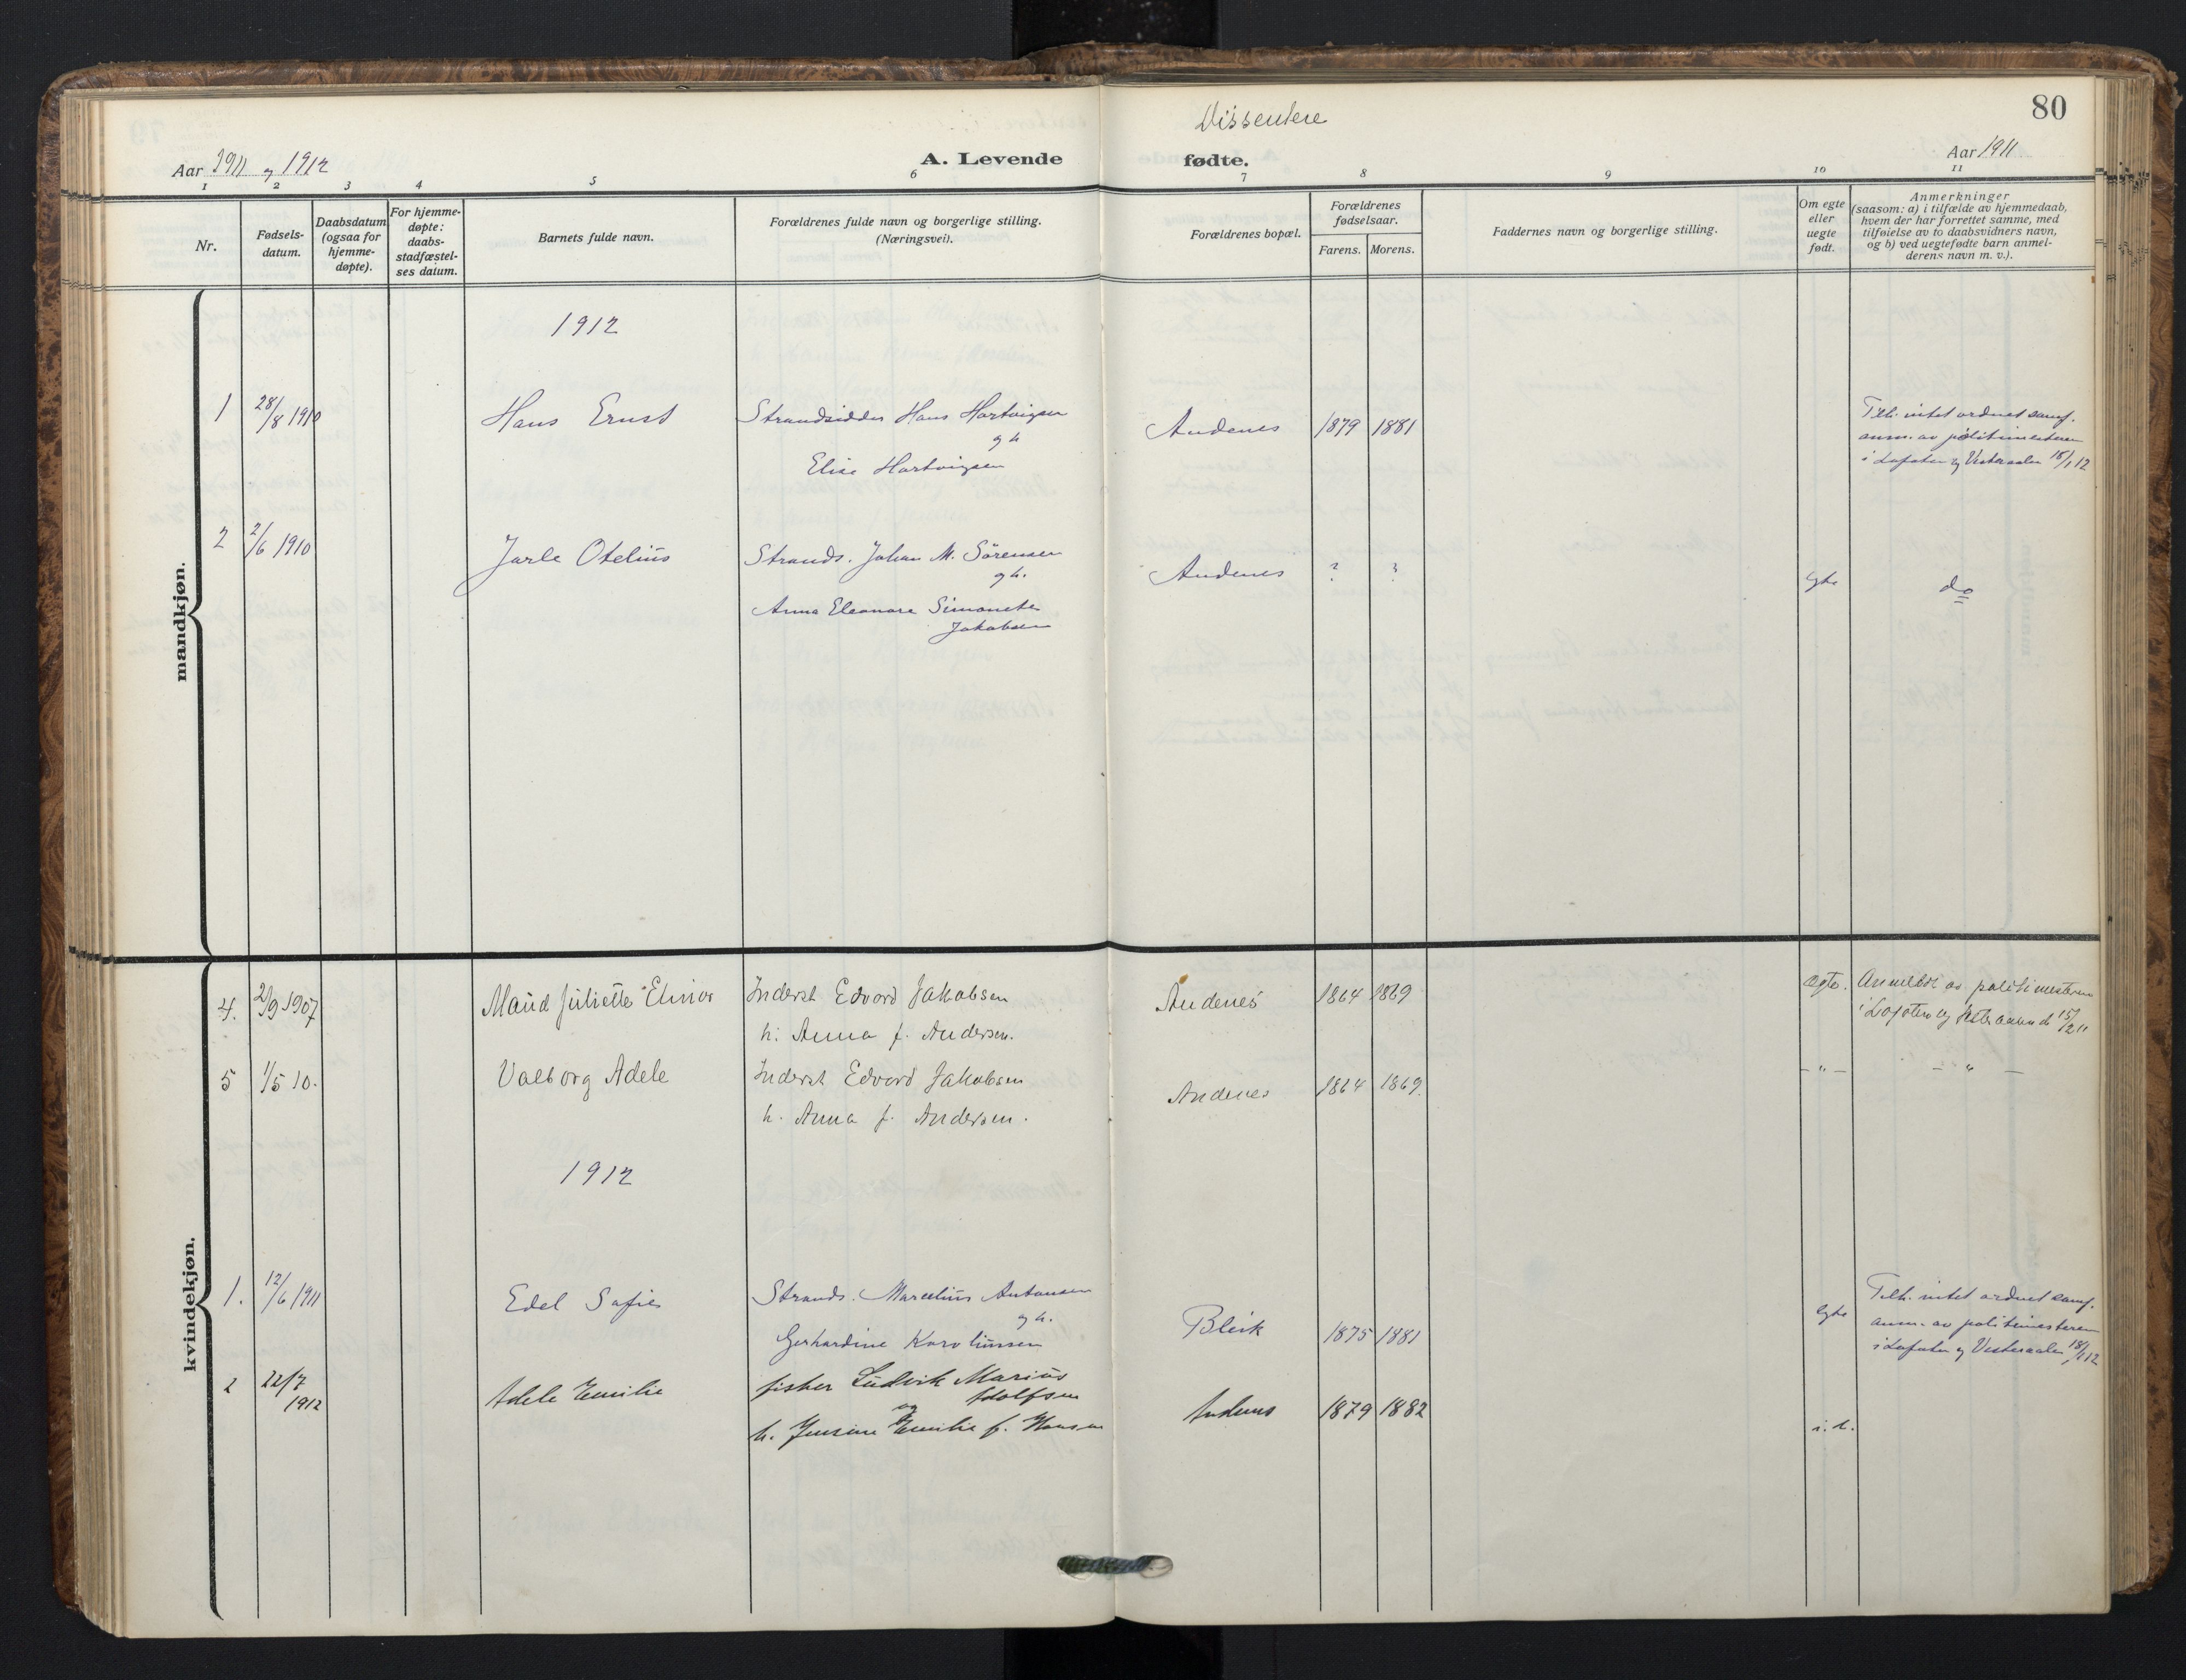 Dissentere
80
Aar 1911 og 1912
A. Levende
fødte.
Aar 1911
1 2 3 4 5 6 7 8 9 10 11
Nr.
Fødsels-
datum.
Daabsdatum
(ogsaa for
hjemme-
døpte).
For hjemme-
døpte:
daabs-
stadfæstel-
ses datum.
Barnets fulde navn.
Forældrenes fulde navn og borgerlige stilling.
(Næringsvei).
Forældrenes bopæl.
Forældrenes
fødselsaar.
Farens. Morens.
Faddernes navn og borgerlige stilling.
Om egte
eller
uegte
født.
Anmerkninger
(saasom: a) i tilfælde av hjemmedaab,
hvem der har forrettet samme, med
tilføielse av to daabsvidners navn,
og b) ved uegtefødte barn anmel-
derens navn m. v.).
mandkjøn.
1912
1 28/8 1910 Hans Ernst Strandsidder Hans Hartvigsen Andenes 1879 1881 Tilh. intet ordnet samf.
og h
anm. av politimesteren
Elise Hartvigsen
i Lofoten og Vesteraalen 18/1 12
2 2/6 1910 Jarle Otelius Strands. Johan M. Sörensen Andenes ? ? Egte do
og h.
Anna Eleonore Simonete
Jakobsen
kvindekjøn.
4. 2/9 1907 Maud Juliette Elinor Inderst Edvard Jakobsen Andenes 1864 1869 Ægte. Anmeldt av politimesteren
h. Anna f. Andersen.
i Lofoten og Vesteraalen d 15/2 11
5 1/5 10. Valborg Adele Inderst Edvard Jakobsen Andenes 1864 1869. - " - - " -
h. Anna f. Andersen.
1912
1. 12/6 1911 Edel Sofie Strands. Marcelius Antonsen Bleik 1875 1881 Egte Tilh. intet ordnet samf.
og h.
anm. av politimesteren
Gerhardine Karoliussen
i Lofoten og Vesteraalen 18/1 12
2 22/7 1912 Adele Emilie fisker Ludvik Marius
Adolfsen
Andenes 1879 1882
og
h. Jensine Emilie f. Hansen